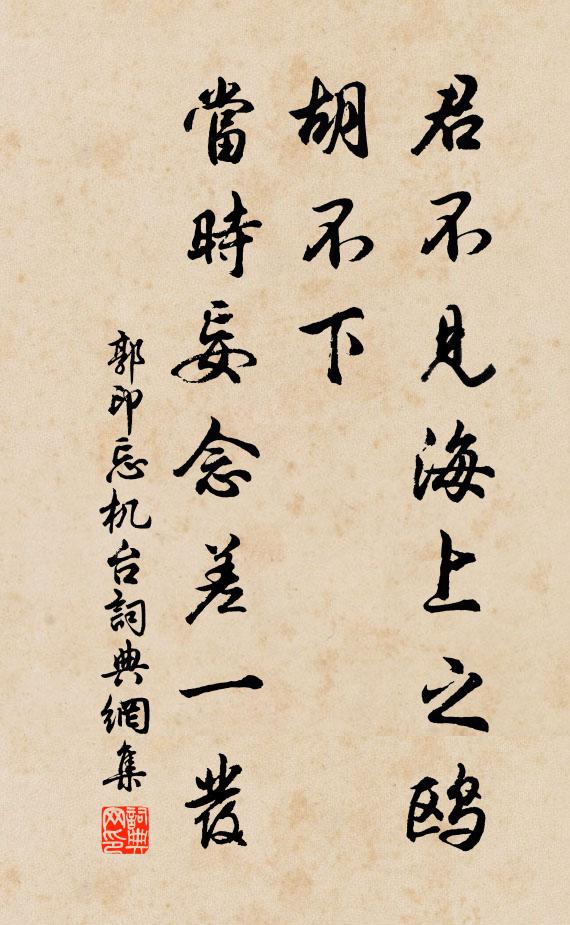 君不見海上之鸥
胡不下
當時妄念差一發
郭印忘机台詞典網集
詞典网印